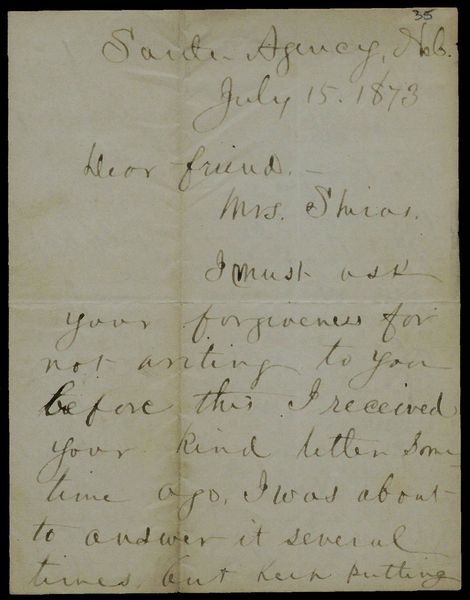 35
Sante Agency, Neb.
July 15. 1873
Dear friend. –
Mrs. Shiras.
I must ask
your forgiveness for
not writing to you
before this I received
your kind letter some
time ago. I was about
to answer it several
times but keep putting